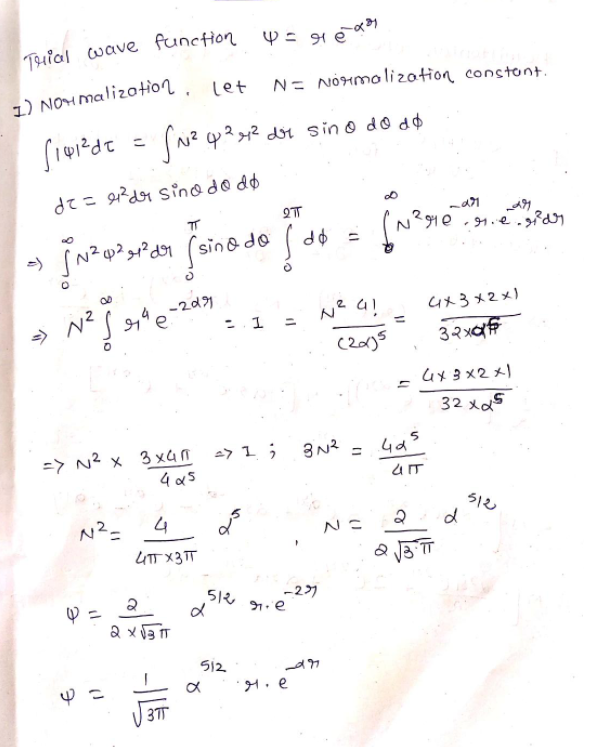 Trial wave function ψ = r e^-αr
I) Normalization. Let N = Normalization constant.
∫|ψ|²dτ = ∫N² ψ² r² dr sinθ dθ dϕ
dτ = r²dr sinθ dθ dϕ
⇒ ∫₀^∞ N²ψ²r²dr ∫₀^π sinθ dθ ∫₀^2π dϕ = ∫₀^∞ N² r e^-αr . r . e^-αr . r²dr
⇒ N² ∫₀^∞ r⁴ e^-2αr = I = N² 4! / (2α)⁵ = 4×3×2×1 / 32×α⁵
= 4×3×2×1 / 32×α⁵
⇒ N² × 3×4π / 4α⁵ ⇒ I ; 3N² = 4α⁵ / 4π
N² = 4 / 4π×3π α⁵ , N = 2 / 2√3π α^5/2
ψ = 2 / 2×√3π α^5/2 r . e^-2r
ψ = 1 / √3π α^5/2 r . e^-αr